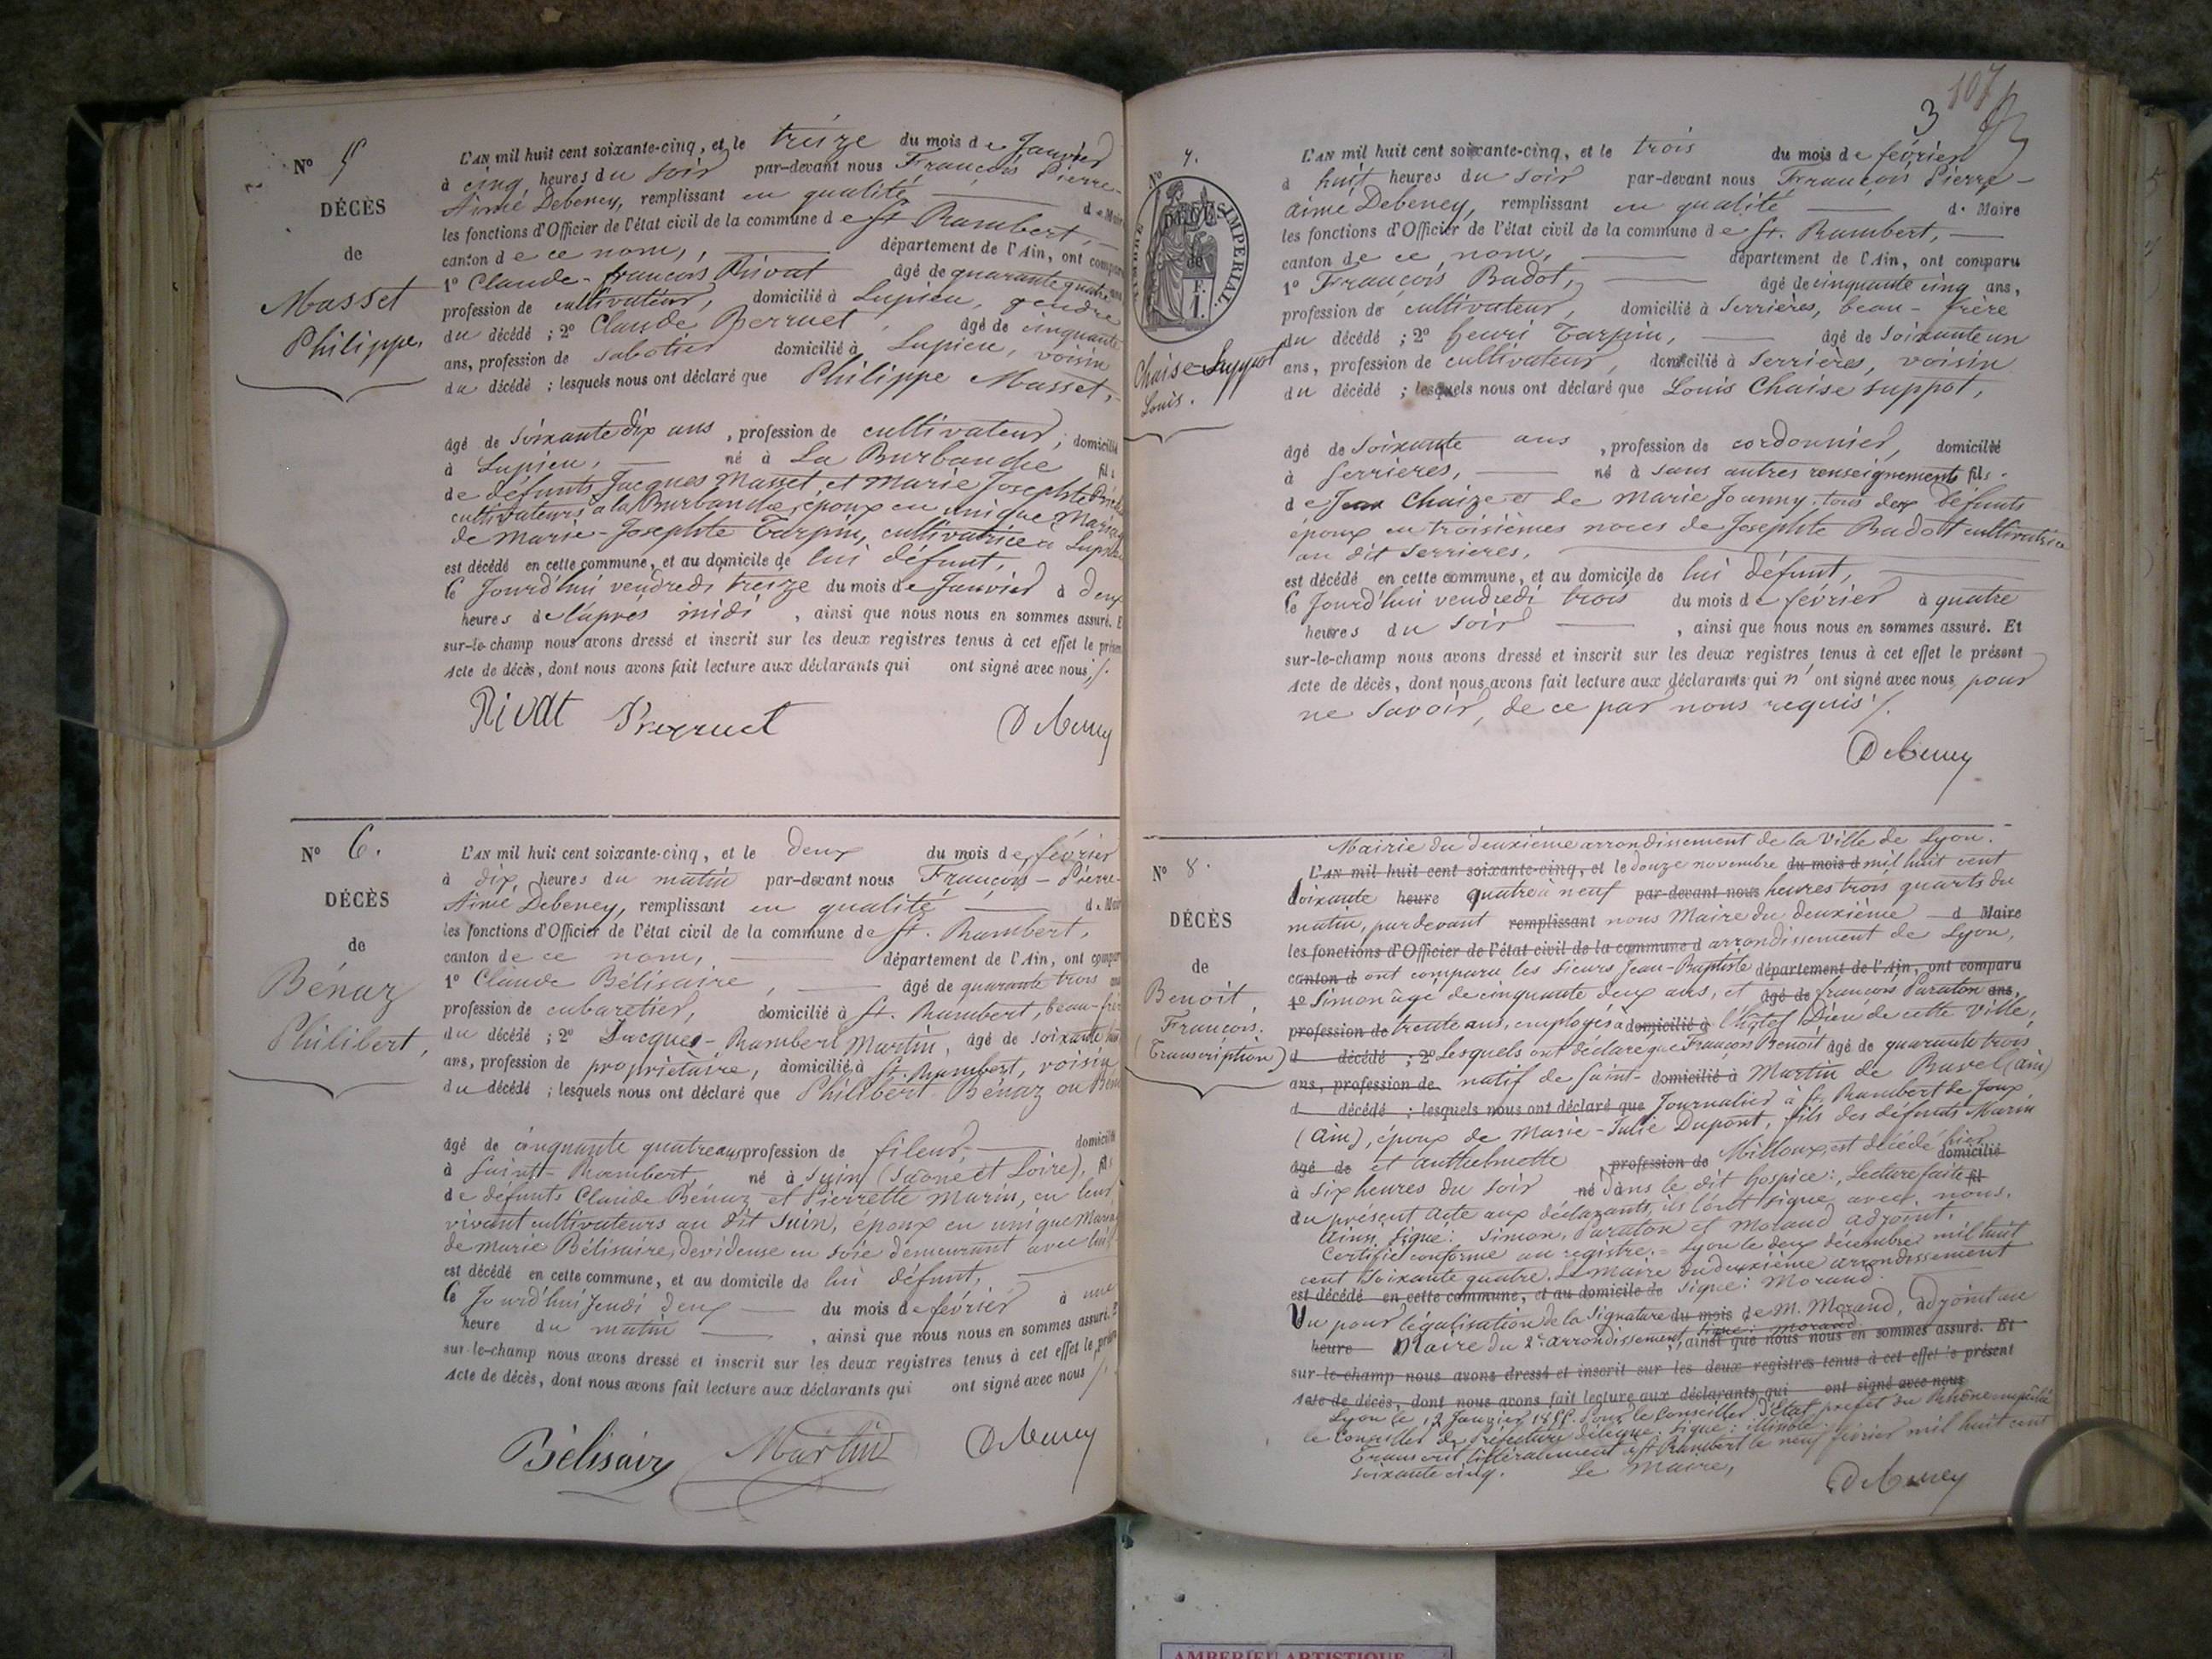 N° 5
DÉCÈS
de
Masset
Philippe,
L'AN mil huit cent soixante-cinq, et le treize du mois de Janvier
à cinq heures du soir par-devant nous François Pierre-
Aimé Debeney, remplissant en qualité de Maire
les fonctions d'Officier de l'état civil de la commune de St Rambert,
canton de ce nom, département de l'Ain, ont comparu
1° Claude-françois Rivat âgé de quarante quatre ans
profession de cultivateur, domicilié à Lupieu, gendre
du décédé ; 2° Claude Perruet, âgé de cinquante
ans, profession de sabotier domicilié à Lupieu, voisin
du décédé ; lesquels nous ont déclaré que Philippe Masset,
âgé de soixante dix ans, profession de cultivateur, domicilié
à Lupieu, né à La Burbanche fils
de défunts Jacques Masset et Marie Josephte
cultivateurs à la Burbanche, époux en unique Mariage
de Marie-Josephte Tarpin, cultivatrice à Lupieu
est décédé en cette commune, et au domicile de lui défunt,
le Jourd'hui vendredi treize du mois de Janvier à deux
heures de l'après midi, ainsi que nous nous en sommes assuré. Et
sur-le-champ nous avons dressé et inscrit sur les deux registres tenus à cet effet le présent
Acte de décès, dont nous avons fait lecture aux déclarants qui ont signé avec nous ./.
Rivat Perruet Debeney
N° 6.
DÉCÈS
de
Bénaz
Philibert,
L'AN mil huit cent soixante-cinq, et le deux du mois de février
à dix heures du matin par-devant nous François-Pierre-
Aimé Debeney, remplissant en qualité de Maire
les fonctions d'Officier de l'état civil de la commune de St. Rambert,
canton de ce nom, département de l'Ain, ont comparu
1° Claude Bélisaire, âgé de quarante trois ans
profession de cabaretier, domicilié à St. Rambert, beau-frère
du décédé ; 2° Jacques-Rambert Martin, âgé de soixante
ans, profession de propriétaire, domicilié à St. Rambert, voisin
du décédé ; lesquels nous ont déclaré que Philibert Bénaz ou
âgé de cinquante quatre ans profession de fileur, domicilié
à Saint-Rambert, né à Suin (Saône et Loire), fils
de défunts Claude Bénaz et Pierrette Marin, en leur
vivant cultivateurs au dit Suin, époux en unique Mariage
de Marie Bélisaire, devideuse en soie demeurant avec lui
est décédé en cette commune, et au domicile de lui défunt,
le Jourd'hui Jeudi deux du mois de février à une
heure du matin, ainsi que nous nous en sommes assuré. Et
sur-le-champ nous avons dressé et inscrit sur les deux registres tenus à cet effet le présent
Acte de décès, dont nous avons fait lecture aux déclarants qui ont signé avec nous ./.
Bélisaire Martin Debeney
107
3
N° 7.
DÉCÈS
de
TIMBRE IMPERIAL.
F.
1.
Chaise-Suppot
Louis.
L'AN mil huit cent soixante-cinq, et le trois du mois de février
à huit heures du soir par-devant nous François Pierre-
Aimé Debeney, remplissant en qualité de Maire
les fonctions d'Officier de l'état civil de la commune de St. Rambert,
canton de ce nom, département de l'Ain, ont comparu
1° François Badot, âgé de cinquante cinq ans,
profession de cultivateur, domicilié à Serrières, beau-frère
du décédé ; 2° henri Tarpin, âgé de soixante un
ans, profession de cultivateur, domicilié à Serrières, voisin
du décédé ; lesquels nous ont déclaré que Louis Chaise suppot,
âgé de soixante ans, profession de cordonnier, domicilié
à Serrières, né à sans autres renseignements fils
de Jean Chaize et de Marie Joanny, tous deux défunts
époux en troisièmes noces de Josephte Badot cultivatrice
au dit Serrieres.
est décédé en cette commune, et au domicile de lui défunt,
le Jourd'hui vendredi trois du mois de février à quatre
heures du soir, ainsi que nous nous en sommes assuré. Et
sur-le-champ nous avons dressé et inscrit sur les deux registres tenus à cet effet le présent
Acte de décès, dont nous avons fait lecture aux déclarants qui n'ont signé avec nous pour
ne savoir, de ce par nous requis ./.
Debeney
N° 8.
DÉCÈS
de
Benoit,
François.
(Transcription)
Mairie du deuxième arrondissement de la Ville de Lyon.
L'AN mil huit cent soixante-cinq, et le douze novembre du mois d mil huit cent
soixante heure quatre à neuf par-devant nous heures trois quarts du
matin, pardevant remplissant nous Maire du deuxième d Maire
les fonctions d'Officier de l'état civil de la commune d arrondissement de Lyon,
canton d ont comparu les sieurs Jean-Baptiste département de l'Ain, ont comparu
1° Simon âgé de cinquante deux ans, et âgé de françois Paraton ans,
profession de trente ans, employés à domicilié à l'hôtel Dieu de cette Ville,
d décédé ; 2° Lesquels ont déclaré que François Benoit âgé de quarante trois
ans, profession de natif de Saint- domicilié à Martin de Bavel (ain)
d décédé ; lesquels nous ont déclaré que Journalier à St. Rambert de Joux
(Ain), époux de Marie-Julie Dupont, fils des défunts Marin
âgé de et Anthelmette profession de Milloux, est décédé hier domicilié
à six heures du soir né dans le dit hospice : Lecture faite fil
du présent acte aux déclarants, ils l'ont signé avec nous.
Ainsi signé : Simon, Paraton et Morand adjoint.
Certifié conforme au registre. = Lyon le deux décembre mil huit
cent soixante quatre. Le Maire du deuxième arrondissement
est décédé en cette commune, et au domicile de signé : Morand.
Vu pour légalisation de la Signature du mois de M. Morand, adjoint au
heure Maire du 2e arrondissement, signé : Morand ainsi que nous nous en sommes assuré. Et
sur-le-champ nous avons dressé et inscrit sur les deux registres tenus à cet effet le présent
Acte de décès, dont nous avons fait lecture aux déclarants qui ont signé avec nous
Lyon le 12 Janvier 1855. Pour le Conseiller d'Etat préfet du Rhône empêché
le Conseiller de Préfecture délégué, signé : illisible.
Transcrit littéralement à St Rambert le neuf février mil huit cent
soixante cinq. Le Maire,
Debeney
AMBERIEU ARTISTIQUE